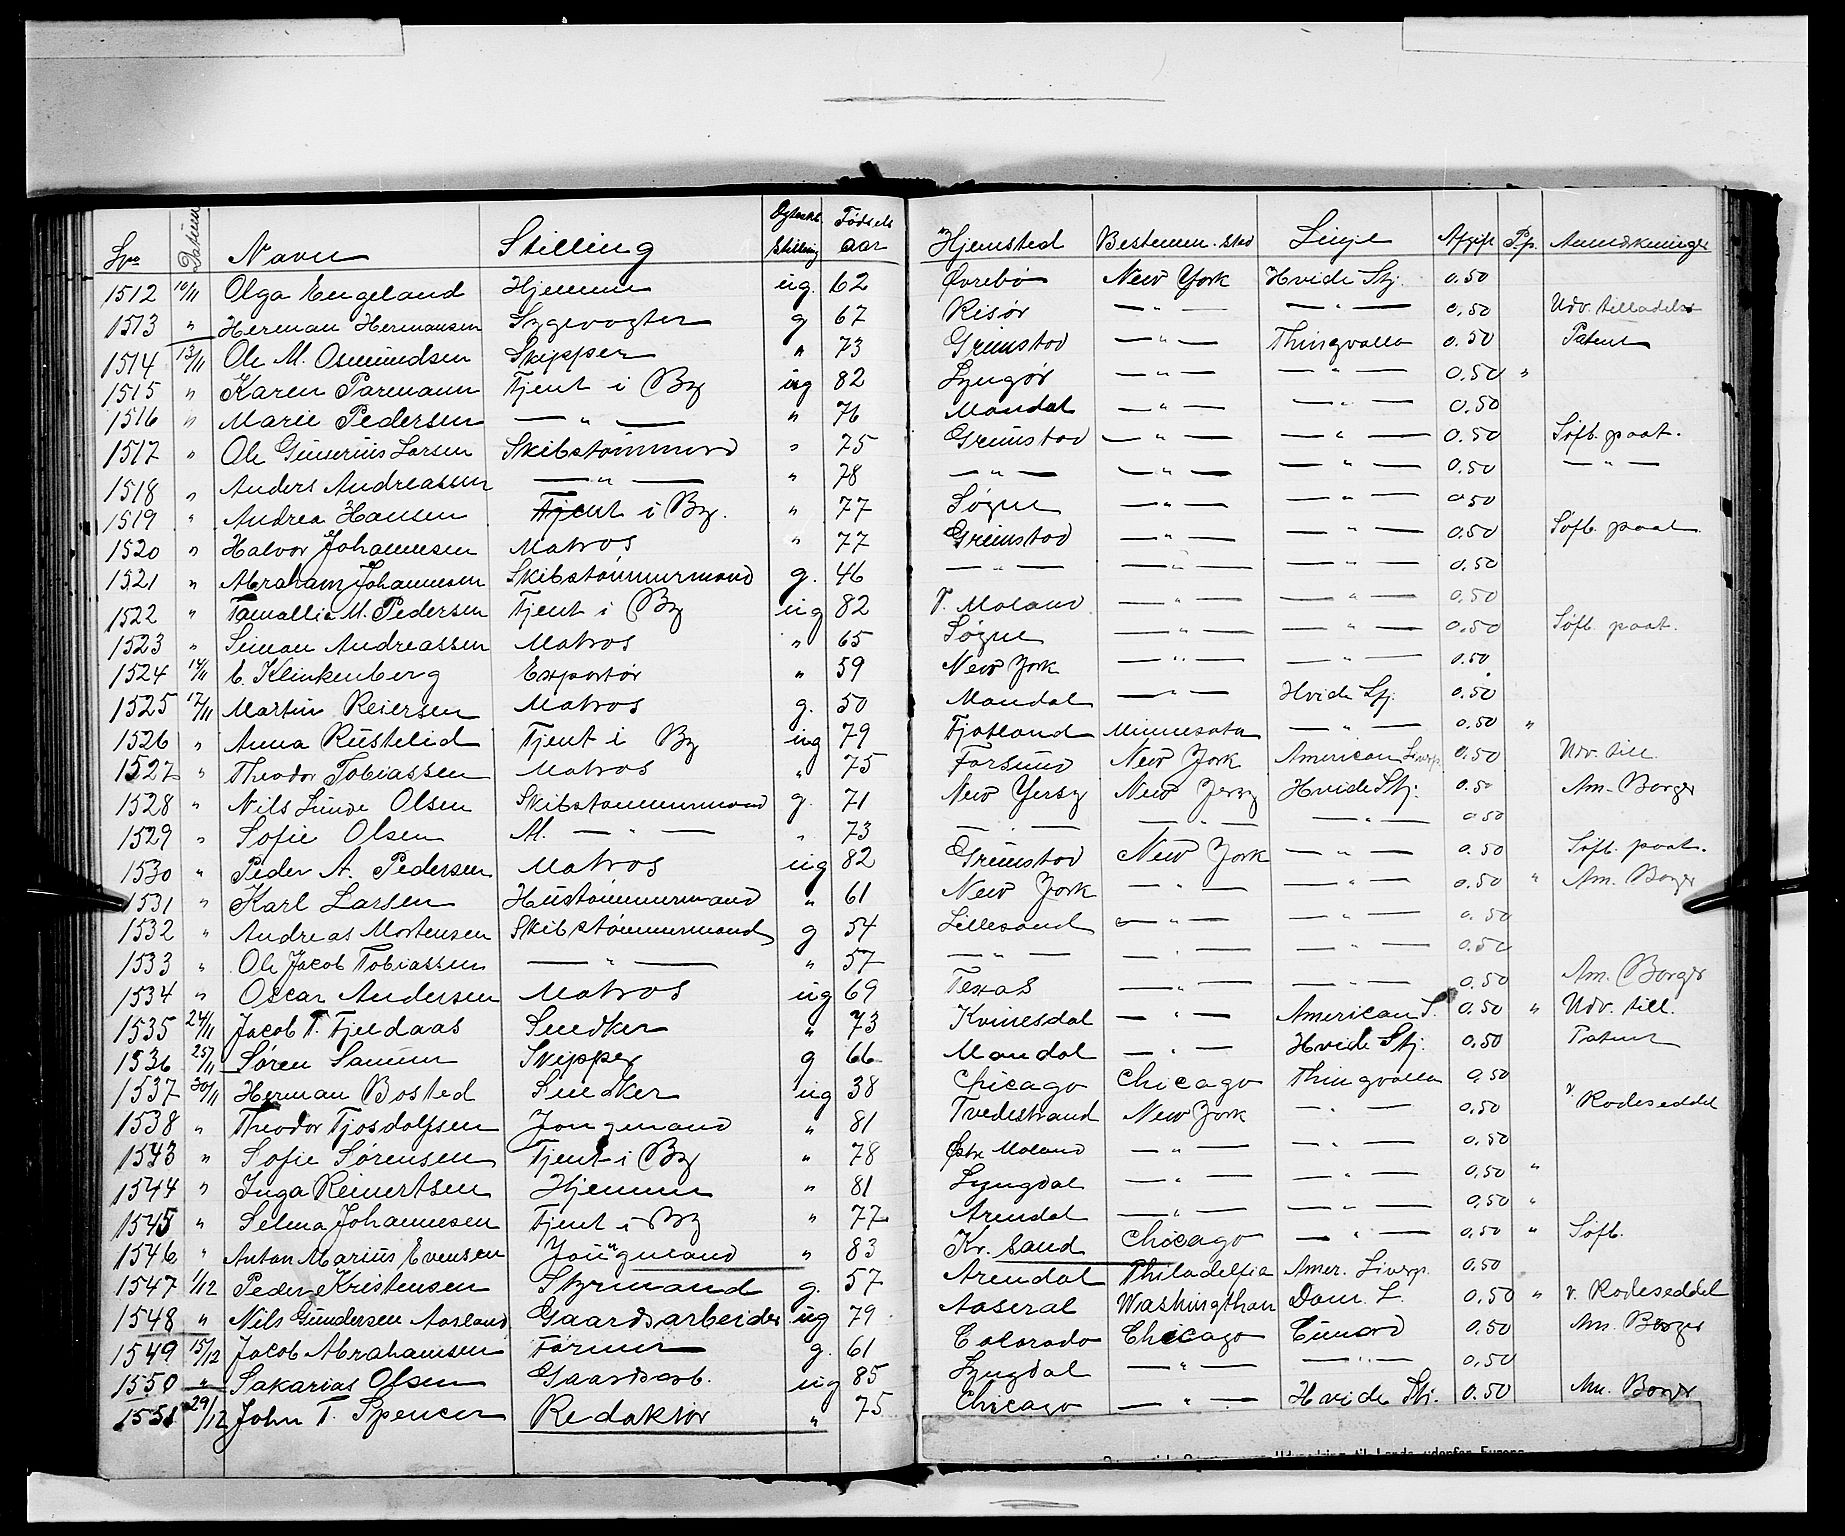 Lno Datum Navn Stilling Ægteskl. Stilling Fødsels aar Hjemsted Bestemm. sted Linje Afgift P.p. Anmærkninger
1512 10/11 Olga Engeland Hjemme ug. 62 Øvrebø New York Hvide Stj. 0.50
1513 " Herman Hermansen Sygevogter g 67 Risør — " — — " — 0,50 Udv. tilladelse
1514 13/11 Ole M. Osmundsen Skipper " 73 Grimstad — " — Thingvalla 0.50 Patent
1515 " Karen Parmann Tjent i By ug 82 Lyngør — " — — " — 0.50 "
1516 " Marie Pedersen — " — " 76 Mandal — " — — " — 0.50
1517 " Ole Gunerius Larsen Skibstømmerm " 75 Grimstad — " — — " — 0.50 Søfb. paat.
1518 " Anders Andreassen — " — " 78 — " — — " — — " — 0.50 — " —
1519 " Andrea Hansen Tjent i By. " 77 Søgne — " — — " — 0.50
1520 " Halvor Johannesen Matros " 77 Grimstad — " — — " — 0.50 Søfb. paat
1521 " Abraham Johannesen Skibstømmermand g. 46 — " — — " — — " — 0.50
1522 " Tamallia M. Pedersen Tjent i By ug 82 V. Moland — " — — " — 0.50
1523 " Simon Andreassen Matros " 65 Søgne — " — — " — 0.50 Søfb. paat.
1524 14/11 C. Klinkenberg Exportør " 59 New York — " — — " — 0.50
1525 17/11 Martin Reiersen Matros g. 50 Mandal — " — Hvide Stj. 0.50
1526 " Anna Rustelid Tjent i By ug 79 Fjotland Minnesota — " — 0.50 "
1527 " Theodor Tobiassen Matros " 75 Farsund New York American Liverp. 0.50 Udv. till.
1528 " Nils Lunde Olsen Skibstømmermand g. 71 New Yersy New Jersy Hvide Stj. 0.50 Am. Borger
1529 " Sofie Olsen M. — " — " 73 — " — — " — — " — 0.50
1530 " Peder A. Pedersen Matros ug 82 Grimstad New York — " — 0.50 Søfb. paat.
1531 " Karl Larsen Hustømmermand " 61 New York — " — — " — 0.50 " Am. Borger
1532 " Andreas Mortensen Skibstømmermand g 54 Lillesand — " — — " — 0.50
1533 " Ole Jacob Tobiassen — " — " 57 — " — — " — — " — 0.50
1534 " Oscar Andersen Matros ug 69 Texas — " — — " — 0.50 Am. Borger
1535 24/11 Jacob T. Fjeldaas Snedker " 73 Kvinesdal — " — American L. 0.50 " Udv. till.
1536 25/11 Søren Samum Skipper g 66 Mandal — " — Hvide Stj. 0.50 Patent
1537 30/11 Herman Bosted Snedker ug 38 Chicago Chicago Thingvalla 0.50
1538 " Theodor Tjosdolfsen Jongmand " 81 Tvedestrand New York — " — 0.50 v. Rodeseddel
1543 " Sofie Sørensen Tjent i By " 78 Østre Moland — " — — " — 0.50
1544 " Inga Reinertsen Hjemme " 81 Lyngdal — " — — " — 0.50 "
1545 " Selma Johannesen Tjent i By " 77 Arendal — " — — " — 0,50 "
1546 " Anton Marius Evensen Joungmand " 83 Kr. sand Chicago — " — 0.50 " Søfb.
1547 1/12 Peder Kristensen Styrmand g. 57 Arendal Philadelfia Amer. Liverp. 0.50
1548 " Nils Gundersen Aasland Gaardsarbeider ug 79 Aaseral Washingthon Dom. L. 0.50 " v. Rodeseddel
1549 15/12 Jacob Abrahamsen Farmer g. 61 Colorado Chicago Cunard 0.50 Am. Borger
1550 " Sakarias Olsen Gaardsarb. ug 85 Lyngdal — " — — " — 0.50
1551 29/12 John T. Spencer Redaktør " 75 Chicago — " — Hvide Stj. 0.50 Am. Borger